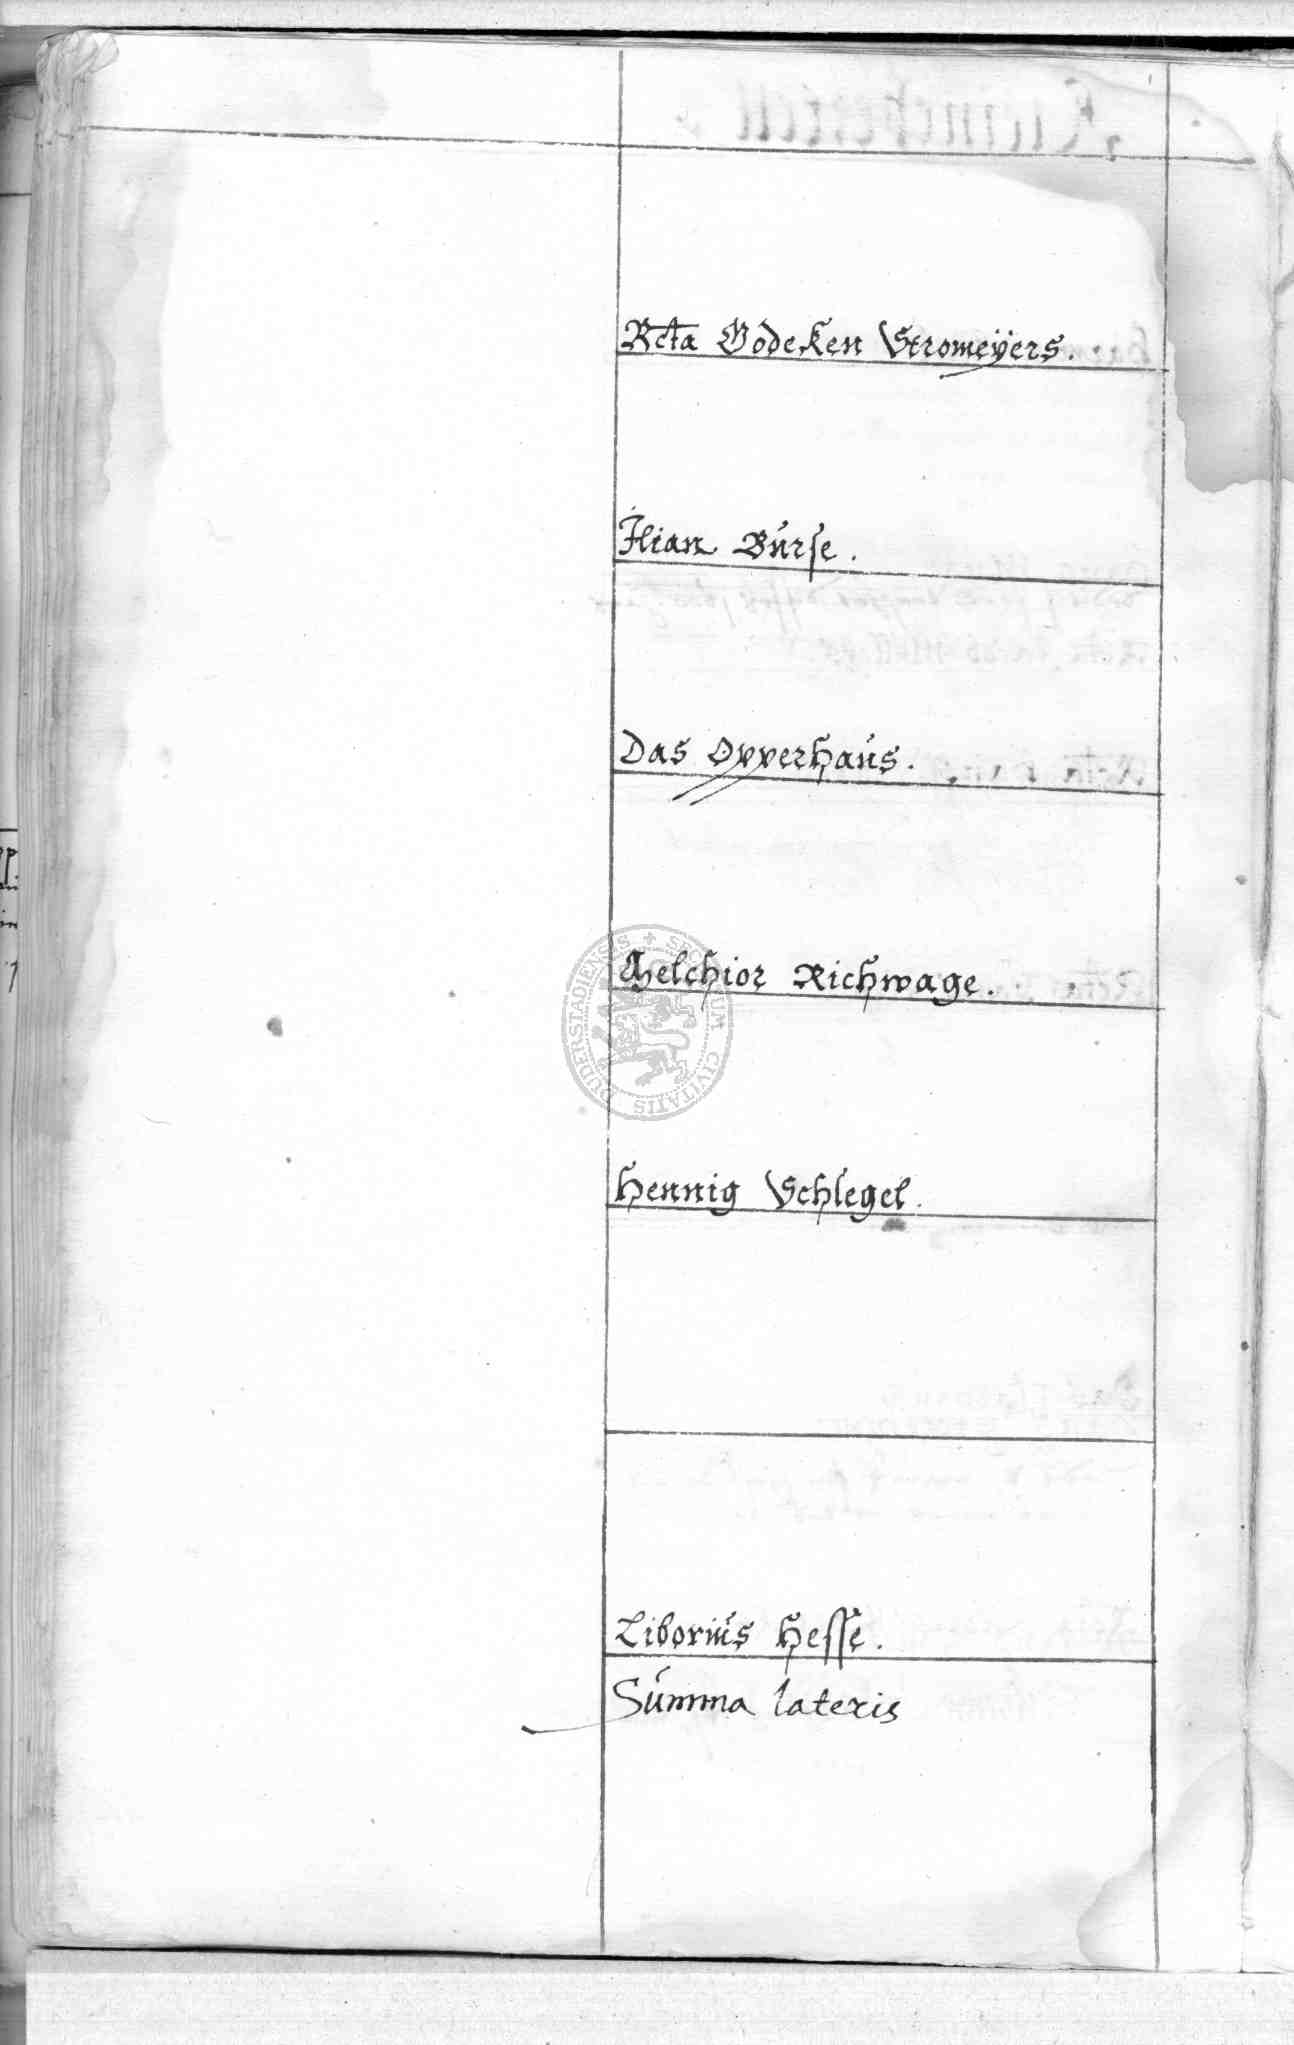 Rcta Godeken Stromeÿers.
Ilian Bürse.
Das Opperhaüs.
Melchior Richwage.
SECRETUM CIVITATIS DUDERSTADIENSIS
Hennig Schlegel.
Liboriüs Hesse.
Sümma lateris